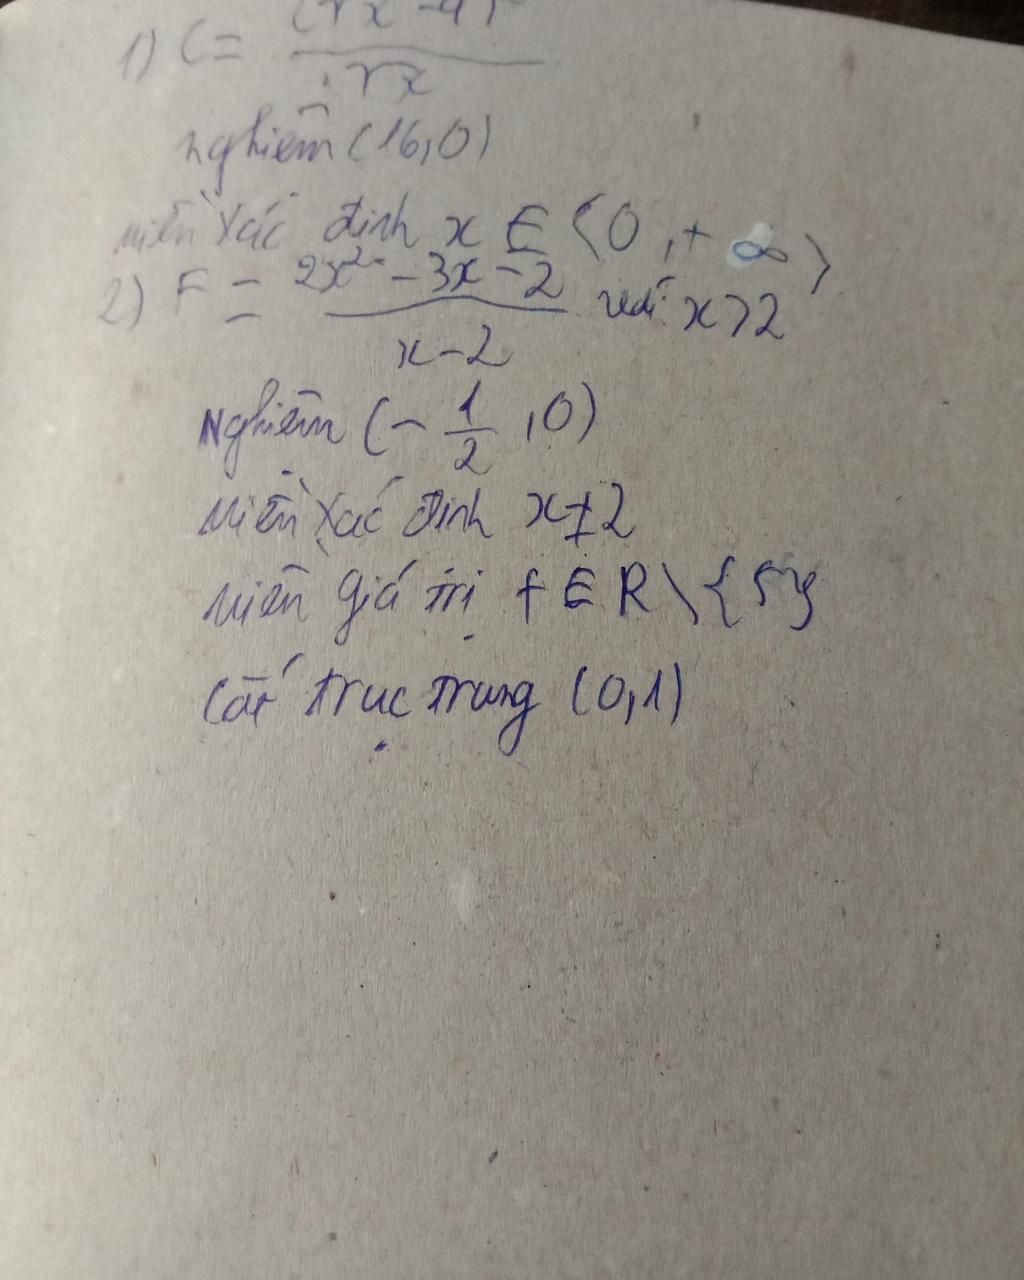 1) C = (√x - 4)
√x
nghiệm (16,0)
miền xác định x ∈ (0, +∞)
2) F = 2x² - 3x - 2 với x>2
x - 2
Nghiệm (- 1/2 ,0)
Miền xác định x≠2
Miền giá trị f ∈ R\{5}
Cắt trục trung (0,1)